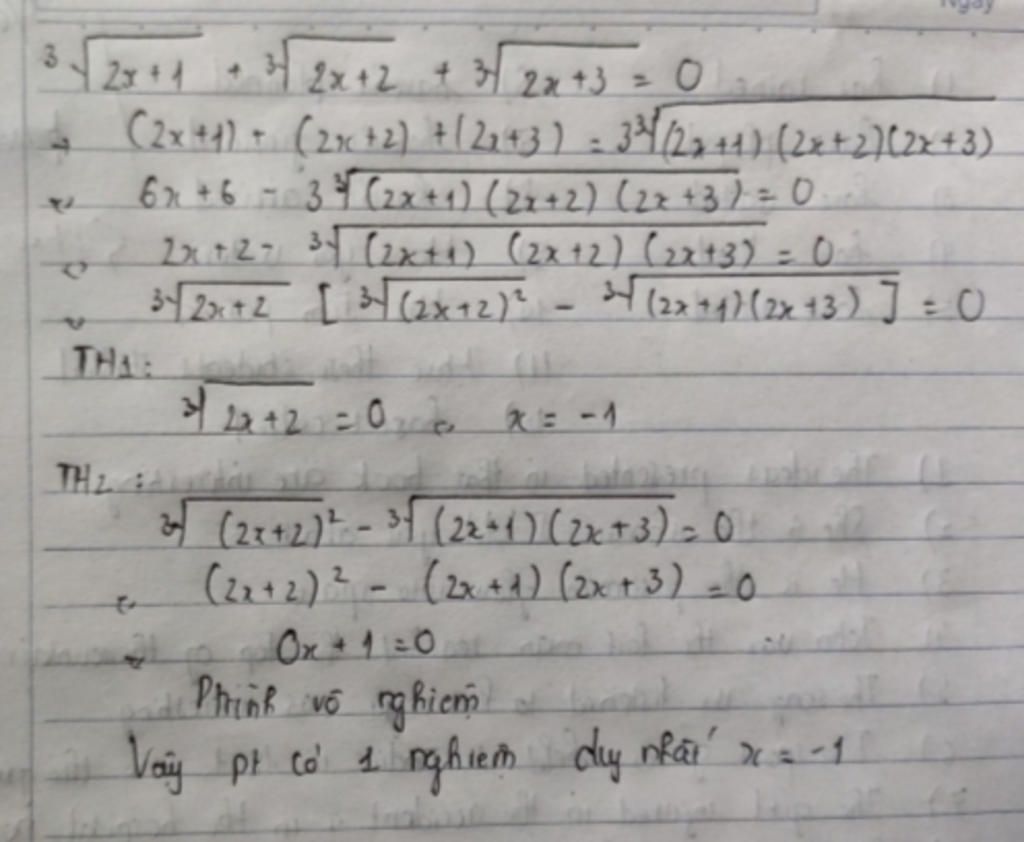 ∛(2x+1) + ∛(2x+2) + ∛(2x+3) = 0
→ (2x+1) + (2x+2) + (2x+3) = 3∛((2x+1)(2x+2)(2x+3))
⇔ 6x + 6 - 3∛((2x+1)(2x+2)(2x+3)) = 0
⇔ 2x + 2 - ∛((2x+1)(2x+2)(2x+3)) = 0
⇔ ∛(2x+2) [∛((2x+2)²) - ∛((2x+1)(2x+3))] = 0
TH1:
∛(2x+2) = 0 ⇔ x = -1
TH2:
∛((2x+2)²) - ∛((2x+1)(2x+3)) = 0
⇔ (2x+2)² - (2x+1)(2x+3) = 0
⇔ 0x + 1 = 0
Phình vô nghiệm
Vậy pt có 1 nghiệm duy nhất x = -1